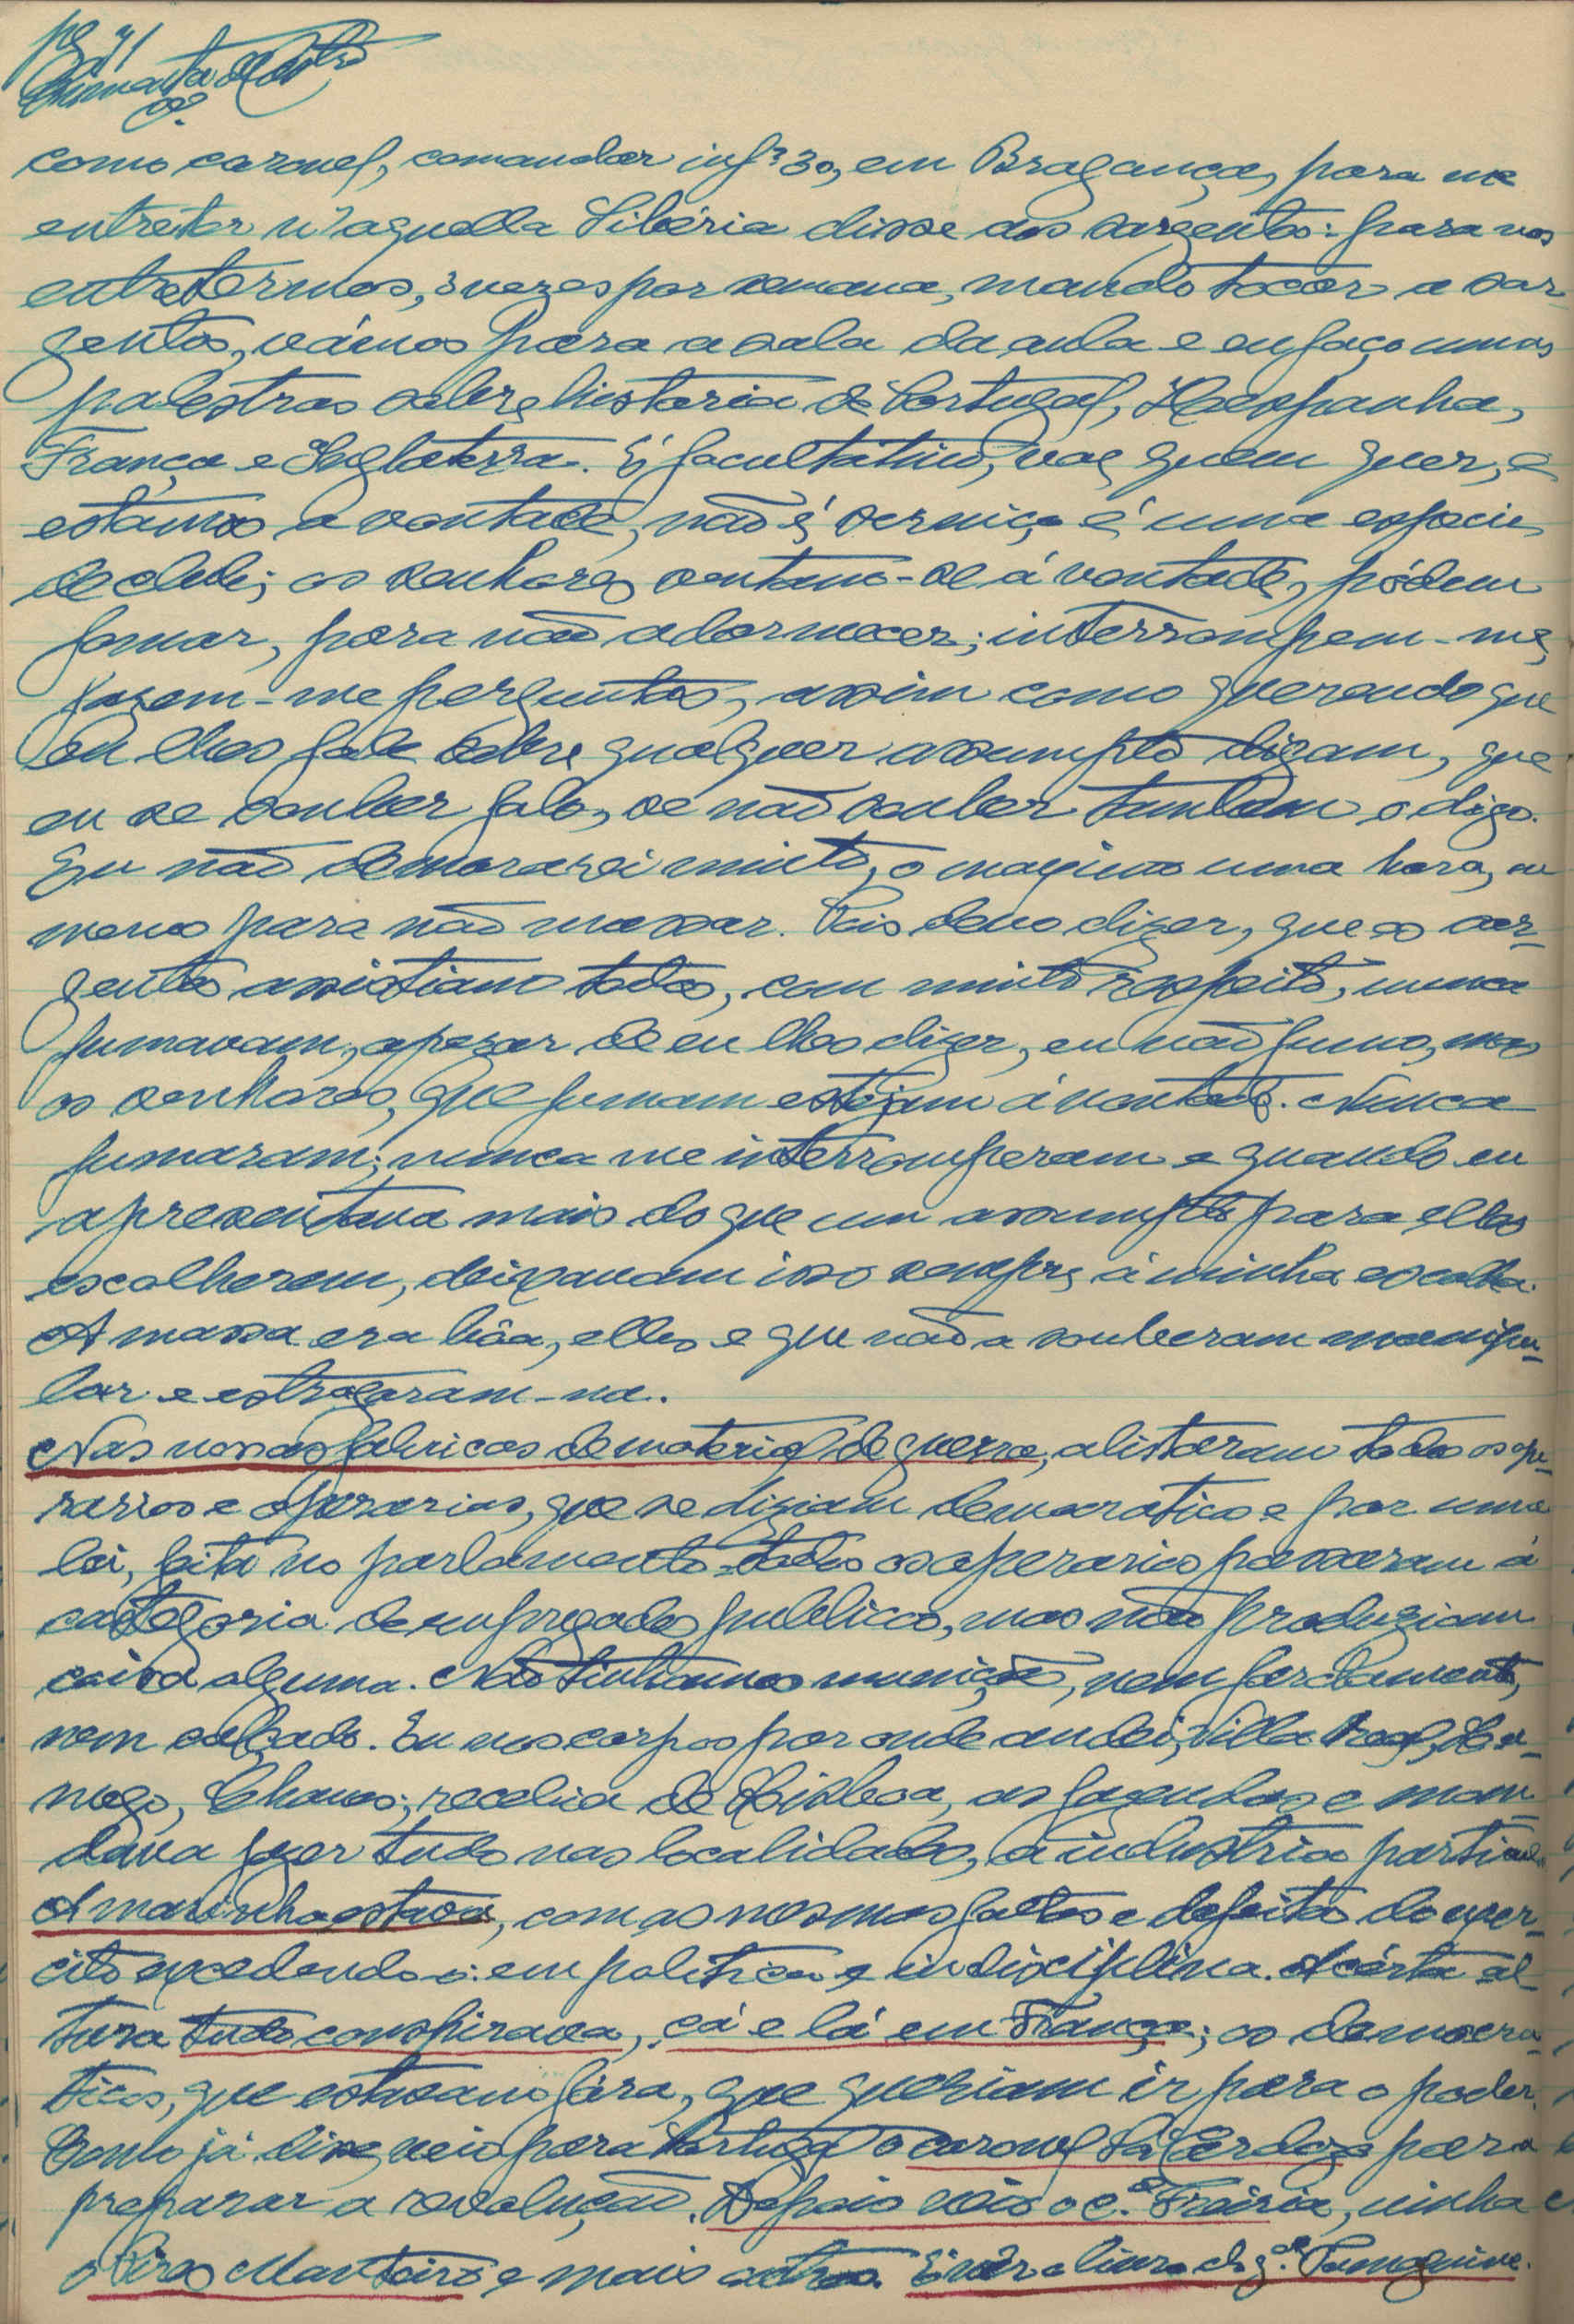 pg 71
como coronel, comandar inf.ª 30, em Bragança, para me
entreter n'aquella Sibéria disse aos sargentos: para nos
entretermos, 3 vezes por semana, mando tocar a sar
gentos, vâmos para a sala da aula e eu faço umas
palestras sobre historia de Portugal, Hespanha,
França e Inglaterra. É facultativo, vae quem quer, e
estâmos a vontade, não é serviço é uma especie
de club; os senhores sentam-se á vontade, pódem
fomar, para não adormecer; interrompem-me,
fazem-me perguntas, assim como querendo que
eu lhes fale sobre qualquer assumpto digam, que
eu se souber falo, se não souber tambem o digo.
Eu não demorarei muito, o maximo uma hora, ou
menos para não massar. Pois devo dizer, que os sar-
gentos assistiam todos, com muito respeito, nunca
fumavam, apezar de eu lhes dizer, eu não fumo, mas
os senhores, que fumam estejam á vontade. Nunca
fumaram; nunca me interromperam e quando eu
apresentava mais do que um assumpto para elles
escolherem, deixavam isso sempre á minha escolha.
A massa era bôa, elles e que não a souberam manipu-
lar e estragaram-na.
Nas nossas fabricas de material de guerra, alistaram todos os ope-
rarios e operarias, que se diziam democraticos e por uma
lei, feita no parlamento todos os operarios passaram á
categoria de empregados publicos, mas não produziam
coisa alguma. Não tinhamos munição, nem fardamento,
nem calçado. Eu nos corpos por onde andei, Villa Real, La-
mego, Chaves; recebia de Lisboa, as fazendas e man-
dava fazer tudo nas localidades, á industria particular.
A marinha estava, com as mesmas faltas e defeitos do exer-
cito excedendo-o em politica e indisciplina. A cérta al-
tura tudo conspirava, cá e lá em França; os democra-
ticos, que estavam fóra, que queriam ir para o poder.
Como já disse veio para Portugal o coronel Sá Cardoso para
preparar a revolução. Depois veio o C.el Freiria, vinha
o Pires Monteiro e mais outros. É vêr o livro do g.al Tamagnini.